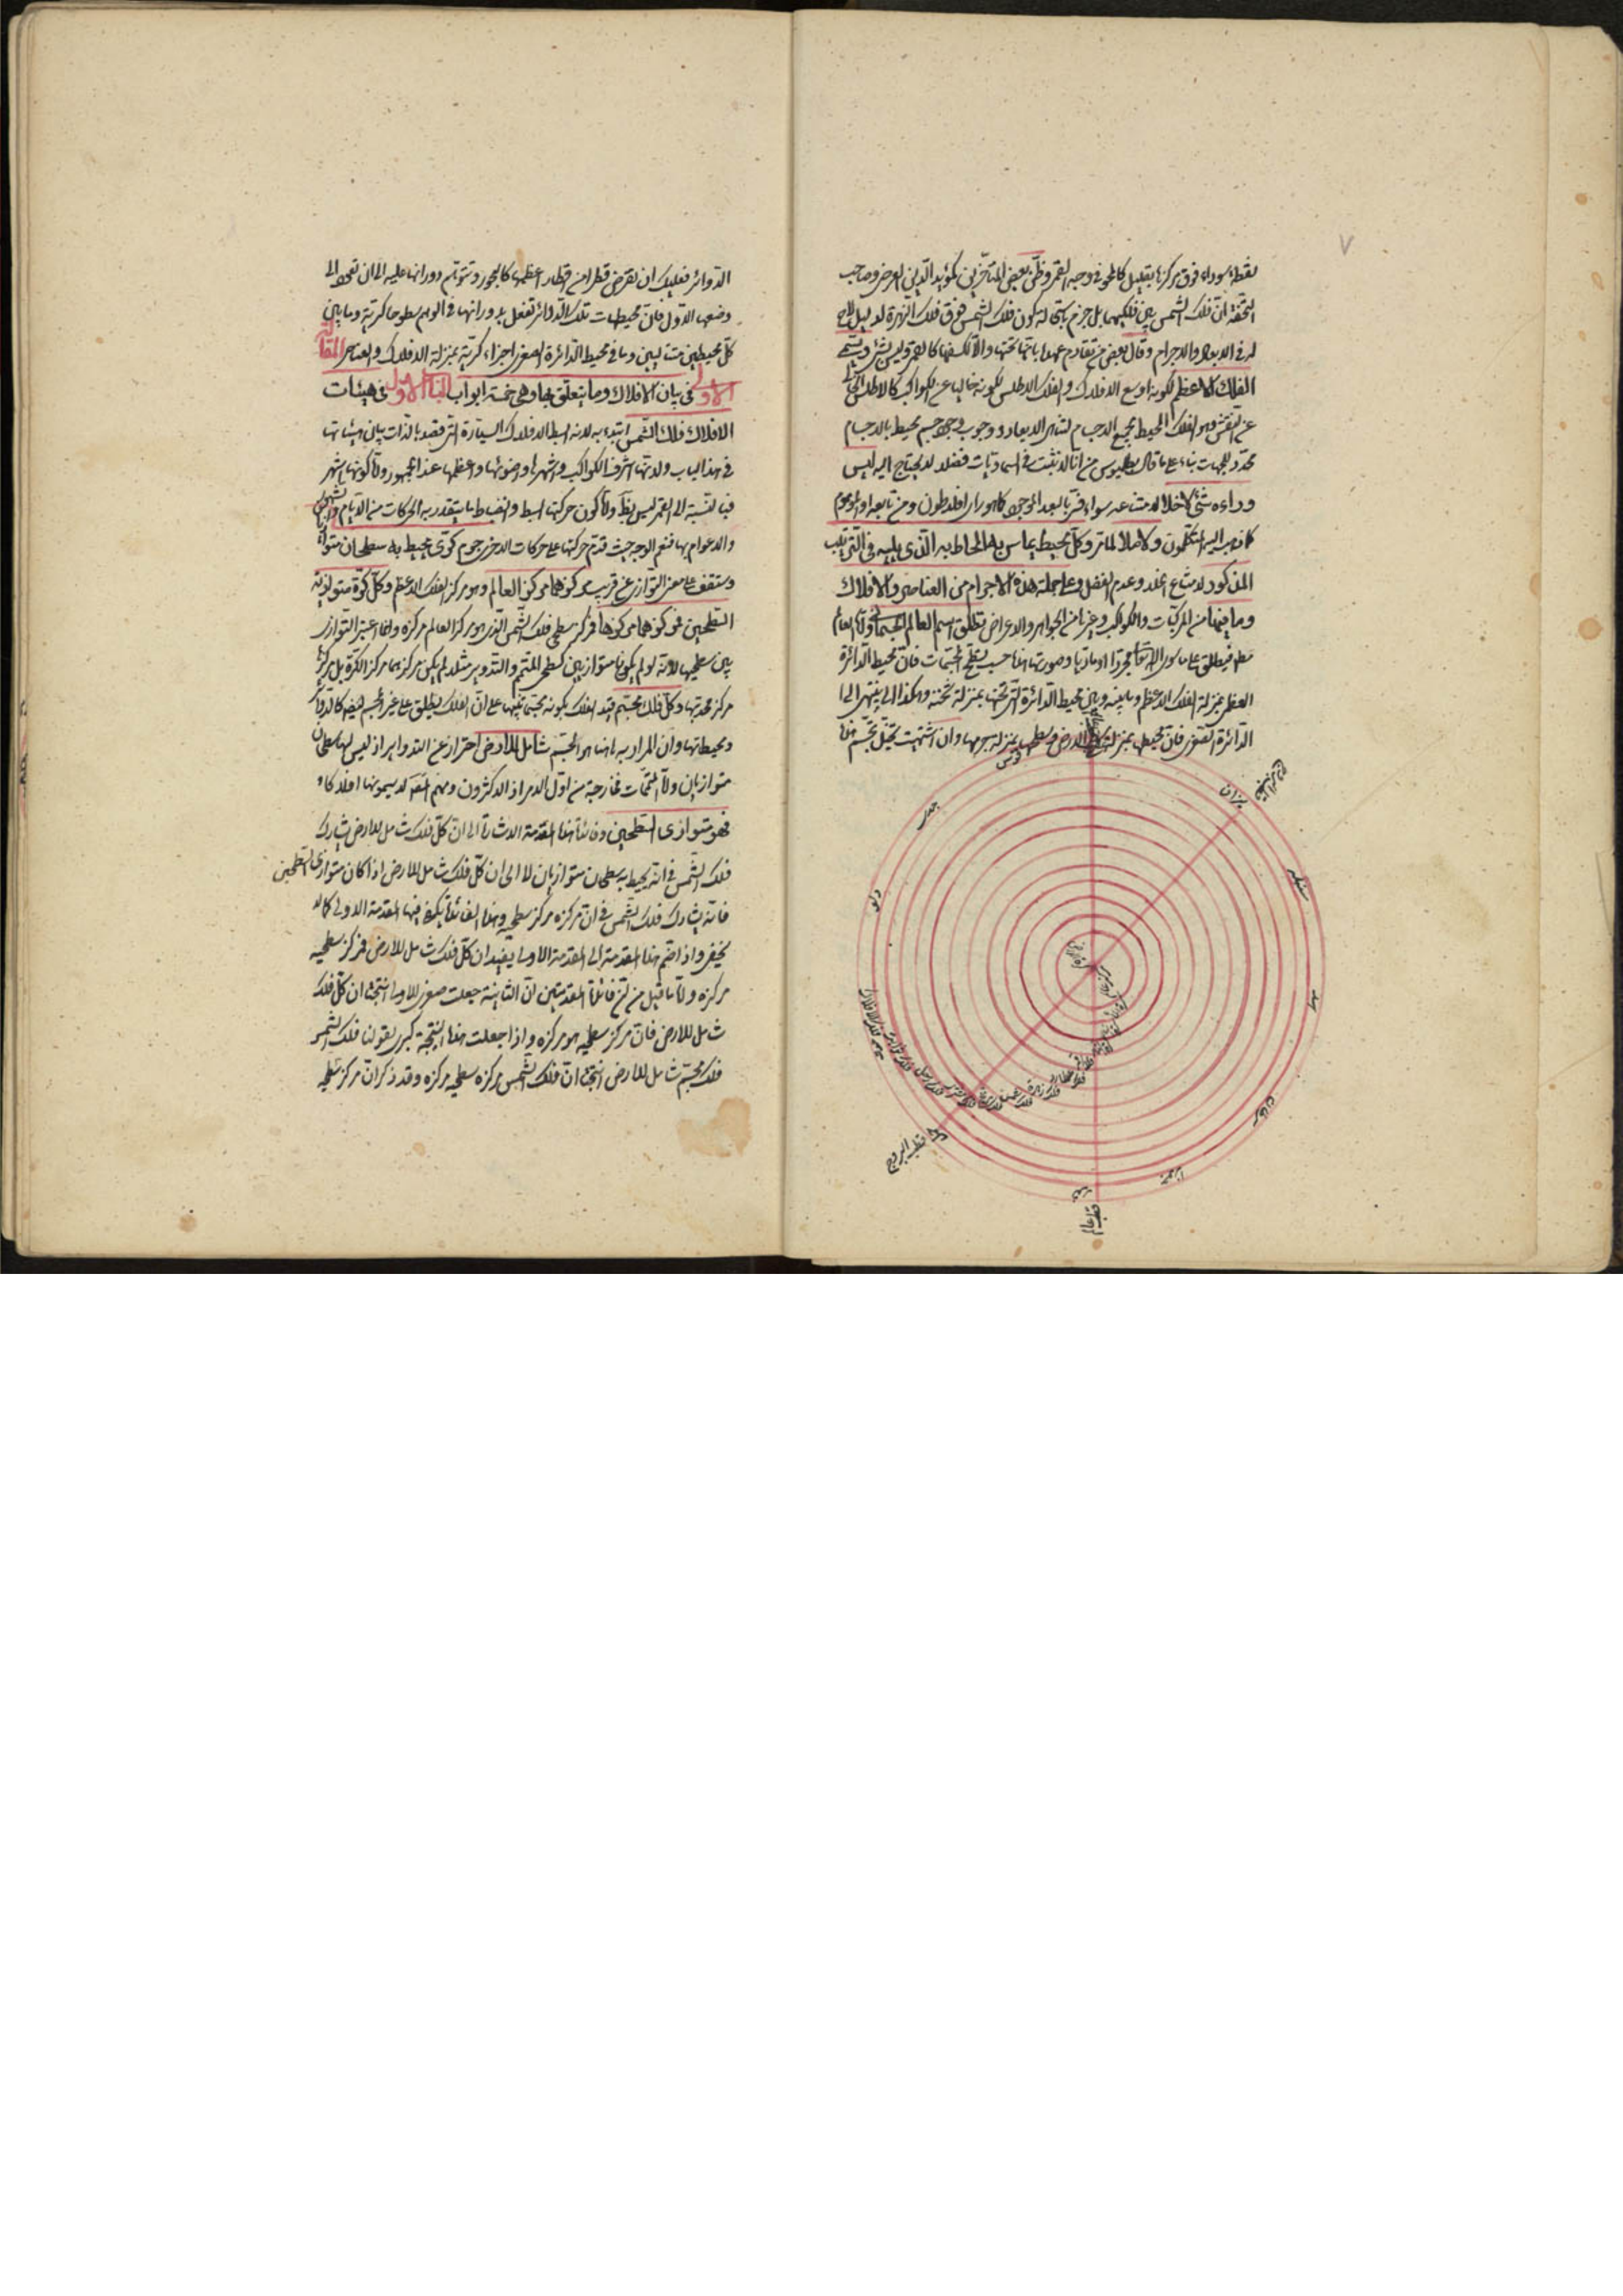 نقطة سوداء فوق مركزها بقليل كالمحو فى وجه القمر وظن بعض المتأخرين كمؤيد الدين العرضى وصاحب
التحفة ان فلك الشمس بين فلكيهما بل جزم باستحالة كون فلك الشمس فوق فلك الزهرة لدليل لاح
له فى الابعاد والاجرام وقال بعض من تقادم عهدا بانهما تحتها والا لكسفاها كالقمر وليس بشئ ويسمى
الفلك الاعظم لكونه اوسع الافلاك والفلك الاطلس لكونه خاليا عن الكواكب كالاطلس الخالى
عن النقش وهو الفلك المحيط بجميع الاجسام لتناهى الابعاد ووجوب وجود جسم محيط بالاجسام
محدد للجهات بناء على ما قال بطلميوس من انا لا نثبت فى السماويات فضلا لا يحتاج اليه ليس
وراءه شئ لا خلاء لامتناعه سواء فسر بالبعد الموجود كما هو رأى افلاطون ومن تابعه او الموهوم
كما ذهب اليه المتكلمون ولا ملاء لما مر وكل محيط يماس به المحاط به الذى يليه فى الترتيب
المذكور لامتناع الخلاء وعدم الفضل وعلى جملة هذه الاجرام من العناصر والافلاك
وما فيها من المركبات والكواكب وغيرها من الجواهر والاعراض يطلق اسم العالم الجسمانى واما العالم
مط فيطلق على ما سوى الله تعالى مجردا او ماديا وصورتها هذا حسب تسطح المجسمات فان محيط الدائرة
العظمى بمنزلة الفلك الاعظم وما بينه وبين محيط الدائرة التى تحتها بمنزلة ثخنه وهكذا الى ان ينتهى الى
الدائرة الصغرى فان محيطها بمنزلة سطح الارض وسطحها بمنزلة جرمها وان اشتهيت تخيل تجسم هذه
قوس
جدى
ميزان
دلو
سنبله
اسد
سرطان
جوزا
حمل
قطب البروج
قطب عالم
الدوائر فعليك ان تفرض قطرا من اقطار اعظمها كالمحور وتتوهم دورانها عليه الى ان تعود الى
وضعها الاول فان محيطات تلك الدوائر تفعل بدورانها فى الوهم سطوحا كرية وما بين
كل محيطين متتاليين وما فى محيط الدائرة الصغرى اجزاء كرية بمنزلة الافلاك والعناصر المقالة
الاولى فى بيان الافلاك وما يتعلق بها وهى خمسة ابواب الباب الاول فى هيئات
الافلاك فلك الشمس ابتدء به لانه ابسط الافلاك السيارة التى قصد بالذات بيان هيئاتها
فى هذا الباب ولانها اشرف الكواكب واشهرها واضوئها واعظمها عند الجمهور واما كونها اشهر
فبالنسبة الى القمر ليس بظ واما كون حركتها ابسط وانضباط ما يتقدر به الحركات من الايام والشهور
والاعوام بها فنعم الوجه حيث قدم حركتها على حركات الاخر جرم كرى يحيط به سطحان متوازيان
وستقف على معنى التوازى عن قريب مركزهما مركز العالم وهو مركز الفلك الاعظم وكل كرة متوازية
السطحين فمركزهما مركزها فمركز سطحى فلك الشمس الذى هو مركز العالم مركزه وانما اعتبر التوازى
بين سطحيها لانه لو لم يكونا متوازيين كسطحى المتمم والتدوير مثلا لم يكن مركزهما مركز الكرة بل مركزها
مركز محدبها وكل فلك مجسم قيد الفلك بكونه مجسما تنبيها على ان الفلك يطلق على غير المجسم ايضا كالدوائر
ومحيطاتها وان المراد به ههنا هو المجسم شامل للارض احتراز عن التداوير اذ ليس لها سطحان
متوازيان واما المتممات فخارجة من اول الامر اذ الاكثرون ومنهم المصنف لا يسمونها افلاكا
فهو متوازى السطحين وفائدة هذه المقدمة الاشارة الى ان كل فلك شامل للارض يشارك
فلك الشمس فى انه يحيط به سطحان متوازيان لا الى ان كل فلك شامل للارض اذا كان متوازى السطحين
فانه يشارك فلك الشمس فى ان مركزه مركز سطحيه وهذه الفائدة يكفى فيها المقدمة الاولى كما لا
يخفى واذا ضم هذه المقدمة الى المقدمة الاولى يفيد ان كل فلك شامل للارض فمركز سطحيه
مركزه واما ما قيل من ان فائدة المقدمتين ان الثانية جعلت صغرى للاولى انتجتا ان كل فلك
شامل للارض فان مركز سطحيه هو مركزه واذا جعلت هذه النتيجة كبرى لقولنا فلك الشمس
فلك مجسم شامل للارض انتجتا ان فلك الشمس مركزه سطحيه مركزه وقد ذكر ان مركز سطحيه